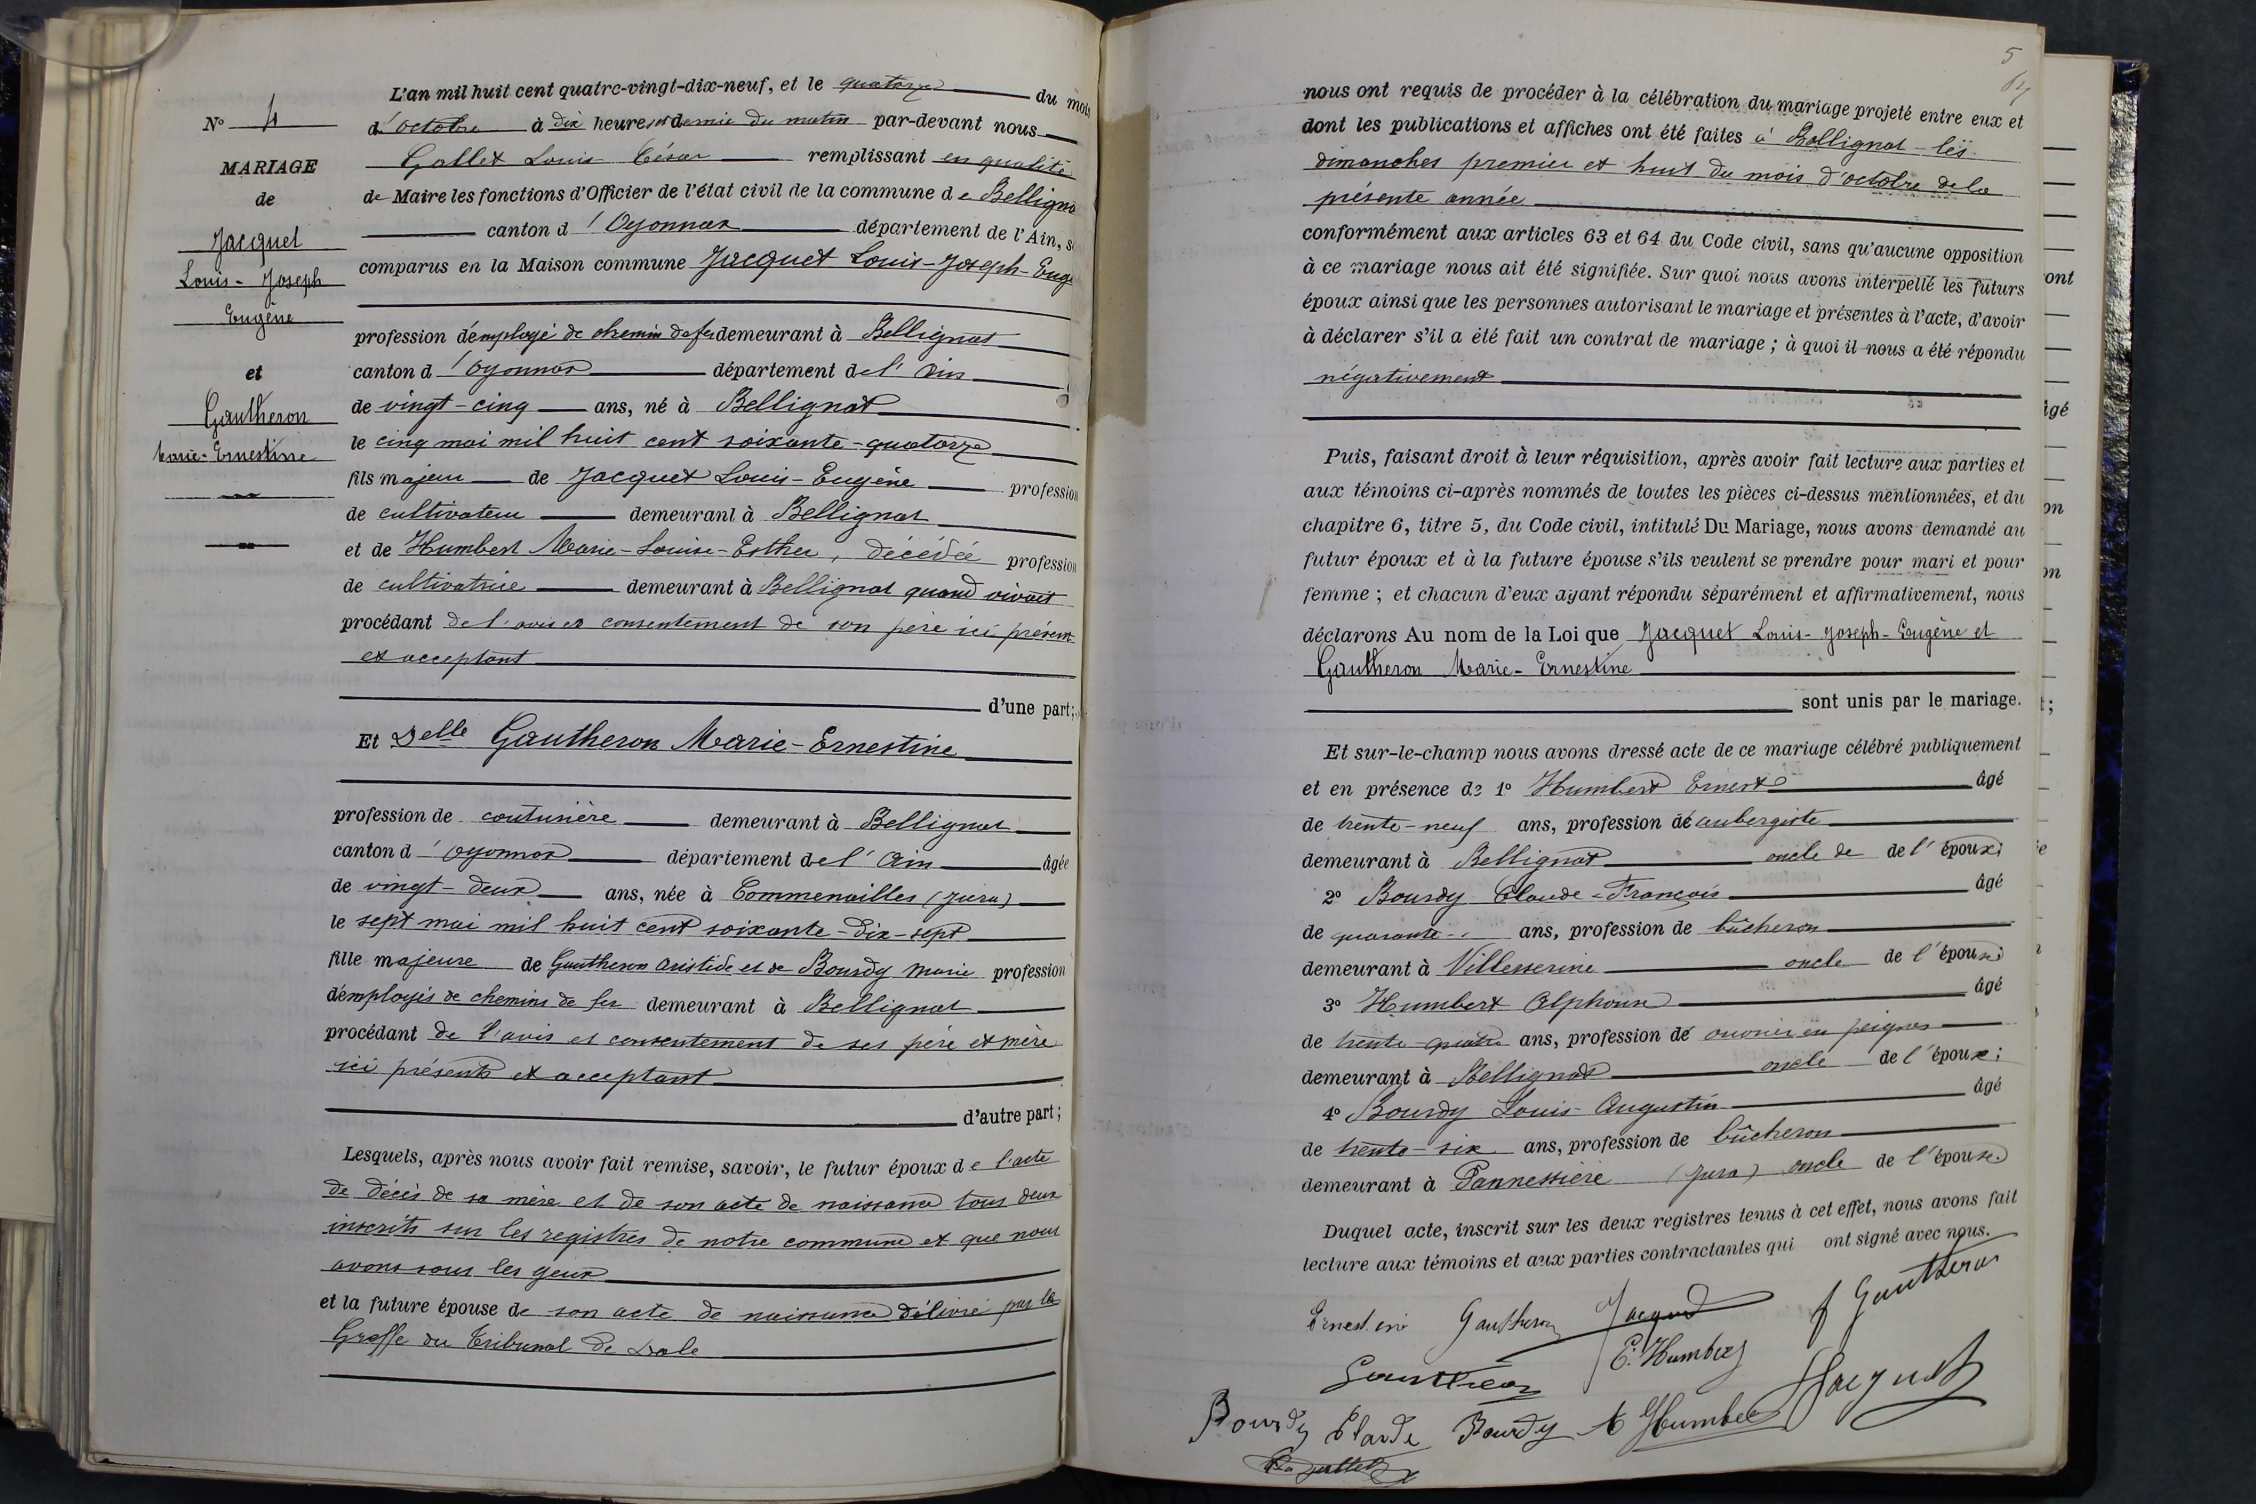 N° 4
MARIAGE
de
Jacquet
Louis-Joseph
Eugène
et
Gautheron
Marie-Ernestine
L'an mil huit cent quatre-vingt-dix-neuf, et le quatorze du mois
d'octobre à dix heures et demie du matin par-devant nous
Gallet Louis César remplissant en qualité
de Maire les fonctions d'Officier de l'état civil de la commune de Bellignat
canton d'Oyonnax département de l'Ain, s
comparus en la Maison commune Jacquet Louis-Joseph-Eug
profession d'employé de chemin de fer demeurant à Bellignat
canton d'Oyonnax département de l'Ain
de vingt-cinq ans, né à Bellignat
le cinq mai mil huit cent soixante-quatorze
fils majeur de Jacquet Louis-Eugène profession
de cultivateur demeurant à Bellignat
et de Humbert Marie-Louise-Esther, décédée profession
de cultivatrice demeurant à Bellignat quand vivait
procédant de l'avis et consentement de son père ici présent
et acceptant
d'une part;
Et Delle Gautheron Marie-Ernestine
profession de couturière demeurant à Bellignat
canton d'Oyonnax département de l'Ain âgée
de vingt-deux ans, née à Commenailles (Jura)
le sept mai mil huit cent soixante-dix-sept
fille majeure de Gautheron Aristide et de Bourdy Marie profession
d'employés de chemins de fer demeurant à Bellignat
procédant de l'avis et consentement de ses père et mère
ici présents et acceptant
d'autre part;
Lesquels, après nous avoir fait remise, savoir, le futur époux de l'acte
de décès de sa mère et de son acte de naissance tous deux
inscrits sur les registres de notre commune et que nous
avons sous les yeux
et la future épouse de son acte de naissance délivré par le
Greffe du Tribunal de Dole
5
nous ont requis de procéder à la célébration du mariage projeté entre eux et
dont les publications et affiches ont été faites à Bellignat les
dimanches premier et huit du mois d'octobre de la
présente année
conformément aux articles 63 et 64 du Code civil, sans qu'aucune opposition
à ce mariage nous ait été signifiée. Sur quoi nous avons interpellé les futurs
époux ainsi que les personnes autorisant le mariage et présentes à l'acte, d'avoir
à déclarer s'il a été fait un contrat de mariage ; à quoi il nous a été répondu
négativement
Puis, faisant droit à leur réquisition, après avoir fait lecture aux parties et
aux témoins ci-après nommés de toutes les pièces ci-dessus mentionnées, et du
chapitre 6, titre 5, du Code civil, intitulé Du Mariage, nous avons demandé au
futur époux et à la future épouse s'ils veulent se prendre pour mari et pour
femme ; et chacun d'eux ayant répondu séparément et affirmativement, nous
déclarons Au nom de la Loi que Jacquet Louis-Joseph-Eugène et
Gautheron Marie-Ernestine
sont unis par le mariage.
Et sur-le-champ nous avons dressé acte de ce mariage célébré publiquement
et en présence de 1° Humbert Ernest âgé
de trente-neuf ans, profession de aubergiste
demeurant à Bellignat oncle de de l'époux;
2° Bourdy Claude-François âgé
de quarante ans, profession de bûcheron
demeurant à Villesserine oncle de l'épouse
3° Humbert Alphonse âgé
de trente-quatre ans, profession de ouvrier en peignes
demeurant à Bellignat oncle de l'époux;
4° Bourdy Louis-Augustin âgé
de trente-six ans, profession de bûcheron
demeurant à Pannessière (Jura) oncle de l'épouse
Duquel acte, inscrit sur les deux registres tenus à cet effet, nous avons fait
lecture aux témoins et aux parties contractantes qui ont signé avec nous.
Ernestine Gautheron Jacquet f Gautheron
Gautheron E. Humbert
Bourdy Claude Bourdy A Humbert Jacquet
Gallet
ont
âgé
on
on